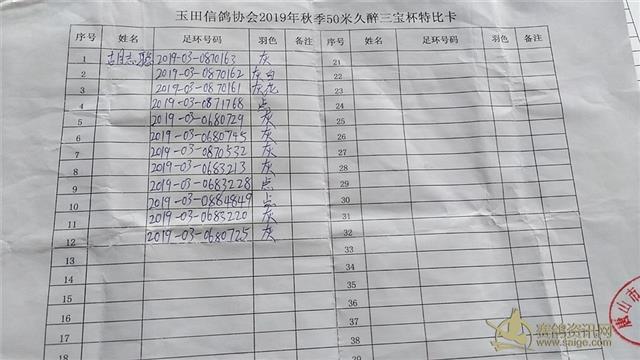 玉田信鸽协会2019年秋季50米久醉三宝杯特比卡
序号 姓名 足环号码 羽色 备注 序号 姓名 足环号码 羽色 备注
1 2019-03-0870163 灰 21
2 2019-03-0870162 灰白 22
3 2019-03-0870161 灰花 23
4 2019-03-0871768 点 24
5 2019-03-0680729 灰 25
6 2019-03-0680745 灰 26
7 2019-03-0870532 灰 27
8 2019-03-0683213 灰 28
9 2019-03-0683228 点 29
10 2019-03-0884849 点 30
11 2019-03-0683220 灰 31
12 2019-03-0680725 灰 32
13 33
14 34
15 35
16 36
17 37
18 38
唐山市
赛鸽资讯网
www.saige.com